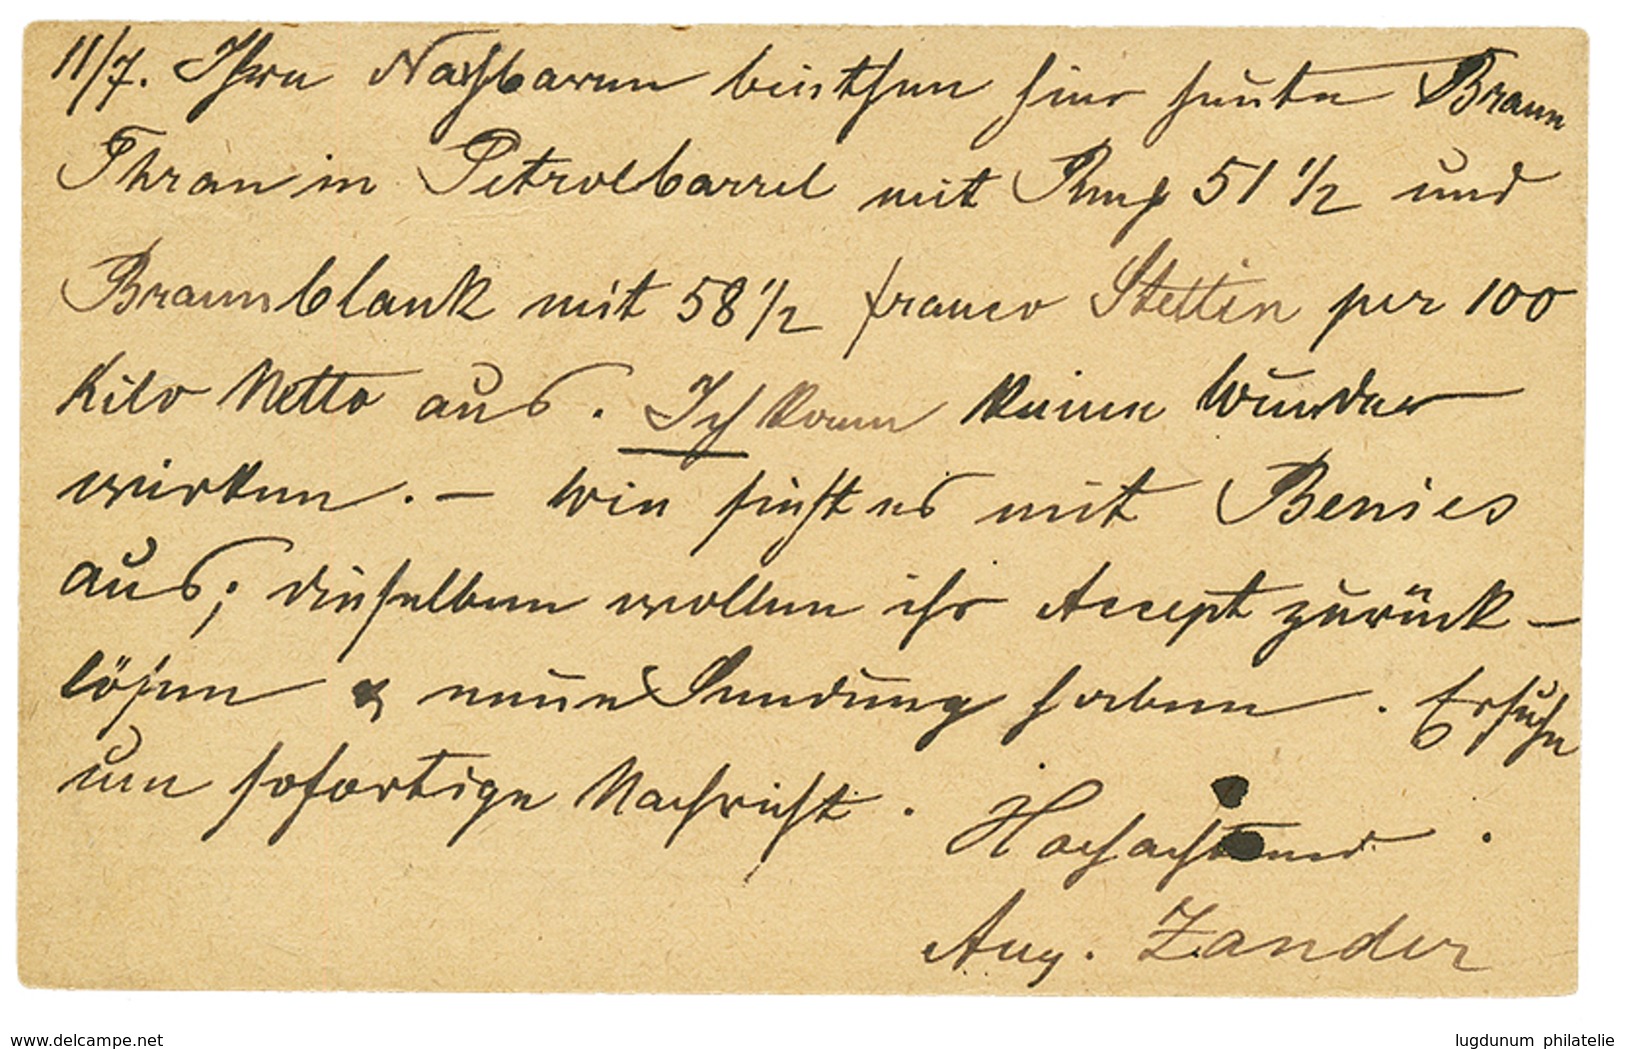 11/7. Ihre Nachbaren bieten hier heute Braun
Thran in Petrolbarrel mit Rmp 51 1/2 und
Braunblank mit 58 1/2 franco Stettin per 100
Kilo Netto aus. Ich kann keine Wunder
wirken. – Wie sieht es mit Benies
aus; dieselben wollen ihr Accept zurück–
lösen & neue Sendung haben. Ersuche
um sofortige Nachricht.
Hochachtend
Aug. Zander
www.delcampe.net
lugdunum philatelie